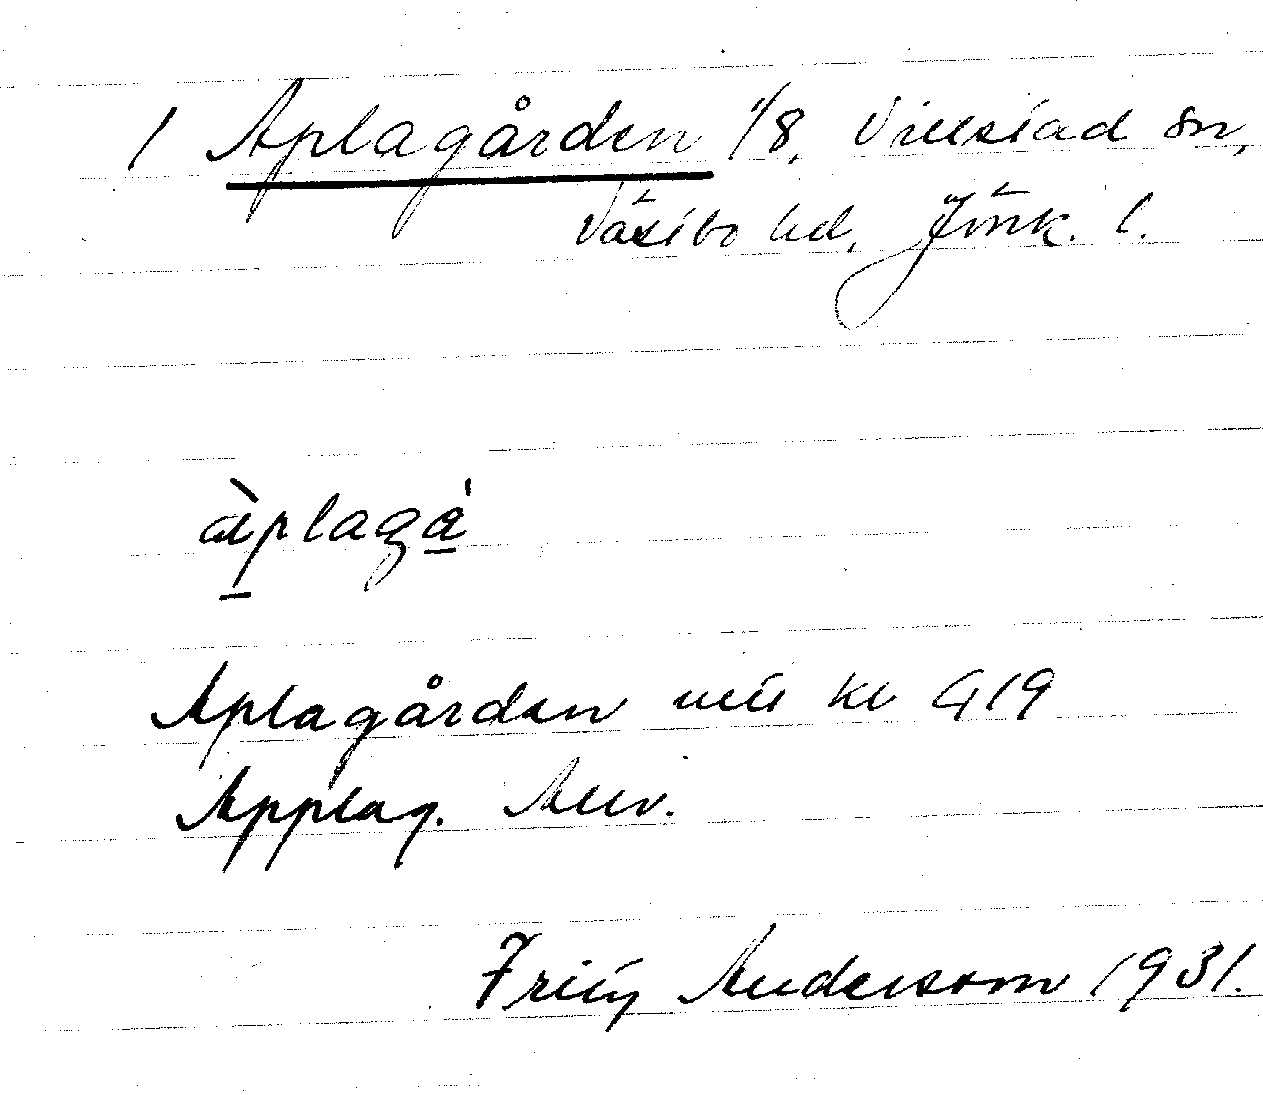 1 Aplagården 1/8, Villstad sn,
Västbo hd, Jönk. l.
àplagá
Aplagården
Applag.
Fritz Anderson 1931.